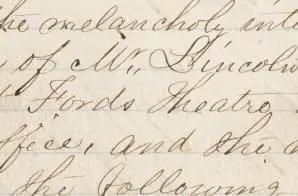 the melancholy
of Mr. Lincoln
Fords Theatre
office, and the
the following